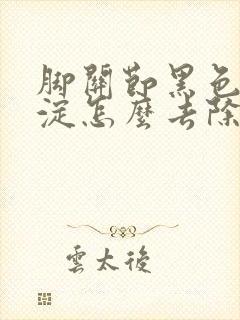 脚關節黑色
淀怎麼去除
雲太後